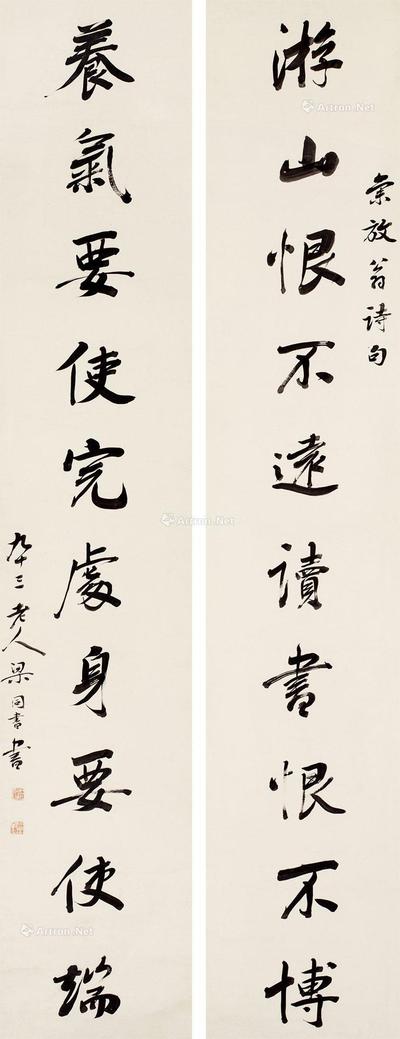 集放翁詩句
游山恨不遠讀書恨不博
養氣要使完處身要使端
九十三老人梁同書書
Artron.Net
Artron.Net
Artron.Net
Artron.Net